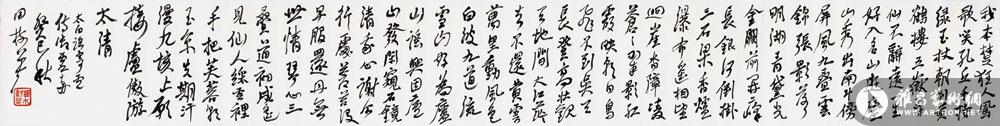 我本楚狂人鳳
歌笑孔丘手持
綠玉杖朝別黃
鶴樓五嶽尋
仙不辭遠一生
好入名山遊廬
山秀出南斗傍
屏風九疊雲
錦張影落
明湖青黛光
金闕前開二峰
長銀河倒掛
三石梁香爐
瀑布遙相望
迴崖沓嶂凌
蒼蒼翠影紅
霞映朝日鳥
飛不到吳天
長登高壯觀
天地間大江茫
茫去不還黃雲
萬里動風色
白波九道流雪
山好為廬
山謠興因廬
山發閒窺石鏡
清我心謝公
行處蒼苔沒
早服還丹無
世情琴心三
疊道初成遙
見仙人綵雲裡
手把芙蓉朝
玉京先期汗
漫九垓上願
接盧敖遊
太清
太白詩
癸巳秋
田
雅昌藝術網
WWW.ARTRON.NET